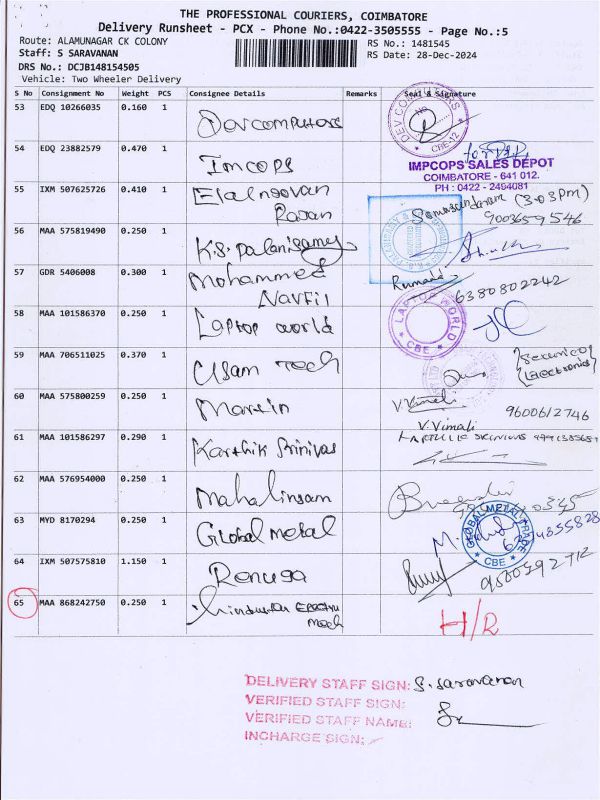 THE PROFESSIONAL COURIERS, COIMBATORE
Delivery Runsheet - PCX - Phone No.:0422-3505555 - Page No.:5
Route: ALAMUNAGAR CK COLONY RS No.: 1481545
Staff: S SARAVANAN RS Date: 28-Dec-2024
DRS No.: DCJB148154505
Vehicle: Two Wheeler Delivery
S No Consignment No Weight PCS Consignee Details Remarks Seal & Signature
53 EDQ 10266035 0.160 1 Devcomputers DEVCOM CBE-12
54 EDQ 23882579 0.470 1 Imcops for
IMPCOPS SALES DEPOT
COIMBATORE - 641 012.
PH : 0422 - 2494081
55 IXM 507625726 0.410 1 Elalngovan
Rajan
(3.03pm)
9003659546
56 MAA 575819490 0.250 1 K.S. Palanisamy
57 GDR 5406008 0.300 1 Mohammed
Navfil
6380802242
58 MAA 101586370 0.250 1 Laptop world LAPTOP WORLD CBE
59 MAA 706511025 0.370 1 Usam Tech
60 MAA 575800259 0.250 1 Martin V.Vimali 9600612746
V.Vimali
61 MAA 101586297 0.290 1 Karthik Srinivas
62 MAA 576954000 0.250 1 Mahalinsam
63 MYD 8170294 0.250 1 Global metal GLOBAL METAL TRADE CBE
64 IXM 507575810 1.150 1 Renuga 9500592712
65 MAA 868242750 0.250 1 hindustan
mech
H/R
DELIVERY STAFF SIGN: S. Saravanan
VERIFIED STAFF SIGN:
VERIFIED STAFF NAME:
INCHARGE SIGN: